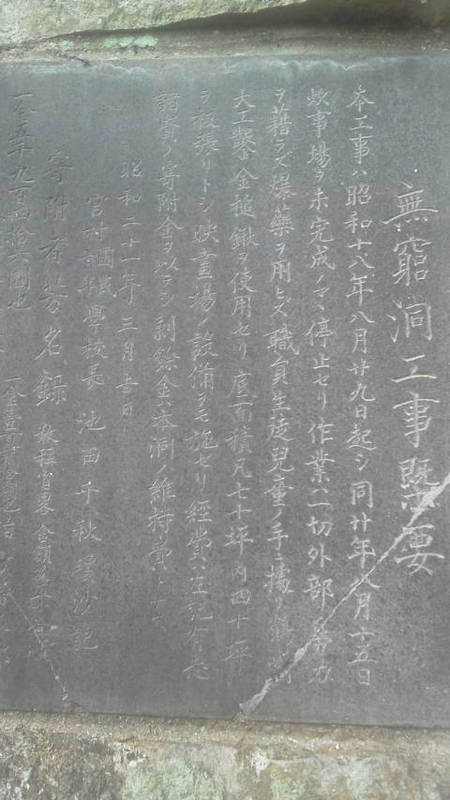 無窮洞工事概要
本工事ハ昭和十八年八月廿九日起シ同廿年八月十五日
炊事場ヲ未完成ノママ停止セリ作業ハ一切外部ノ労力
ヲ藉ラズ爆薬ヲ用ヒズ職員生徒児童ノ手ニ據リ鶴嘴
大工鑿金槌鍬ヲ使用セリ底面積凡七十坪内四十坪
ヲ板張リトシ映畫場ノ設備ヲモ施セリ経費ハ左記有志
諸賢ノ寄附金ヲ以テシ剰餘金ハ本洞ノ維持費トス
昭和二十一年三月 日
宮村國民學校長 池田千秋 記
寄附者芳名録
一金 千九百 拾六圓也